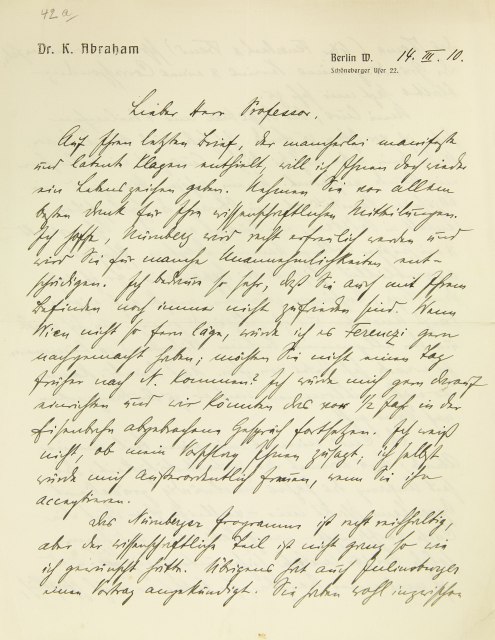 42a
Dr. K. Abraham
Berlin W. 14. III. 10.
Schöneberger Ufer 22.
Lieber Herr Professor.
Auf Ihren letzten Brief, der mancherlei manifeste
und latente Klagen enthielt, will ich Ihnen doch wieder
ein Lebenszeichen geben. Nehmen Sie vor allem
besten Dank für Ihre wissenschaftlichen Mitteilungen.
Ich hoffe, Nürnberg wird recht erfreulich werden und
wird Sie für manche Unannehmlichkeiten ent-
schädigen. Ich bedaure so sehr, daß Sie auch mit Ihrem
Befinden noch immer nicht zufrieden sind. Wenn
Wien nicht so fern läge, würde ich es Ferenczi gern
nachgemacht haben; möchten Sie nicht einen Tag
früher nach N. kommen? Ich würde mich gern darauf
einrichten und wir könnten das vor ½ Jahr in der
Eisenbahn abgebrochene Gespräch fortsetzen. Ich weiß
nicht, ob mein Vorschlag Ihnen zusagt; ich selbst
würde mich außerordentlich freuen, wenn Sie ihn
acceptieren.
Das Nürnberger Programm ist recht reichhaltig,
aber der wissenschaftliche Teil ist nicht ganz so wie
ich gewünscht hätte. Übrigens hat auch Juliusburger
einen Vortrag angekündigt. Sie haben wohl inzwischen